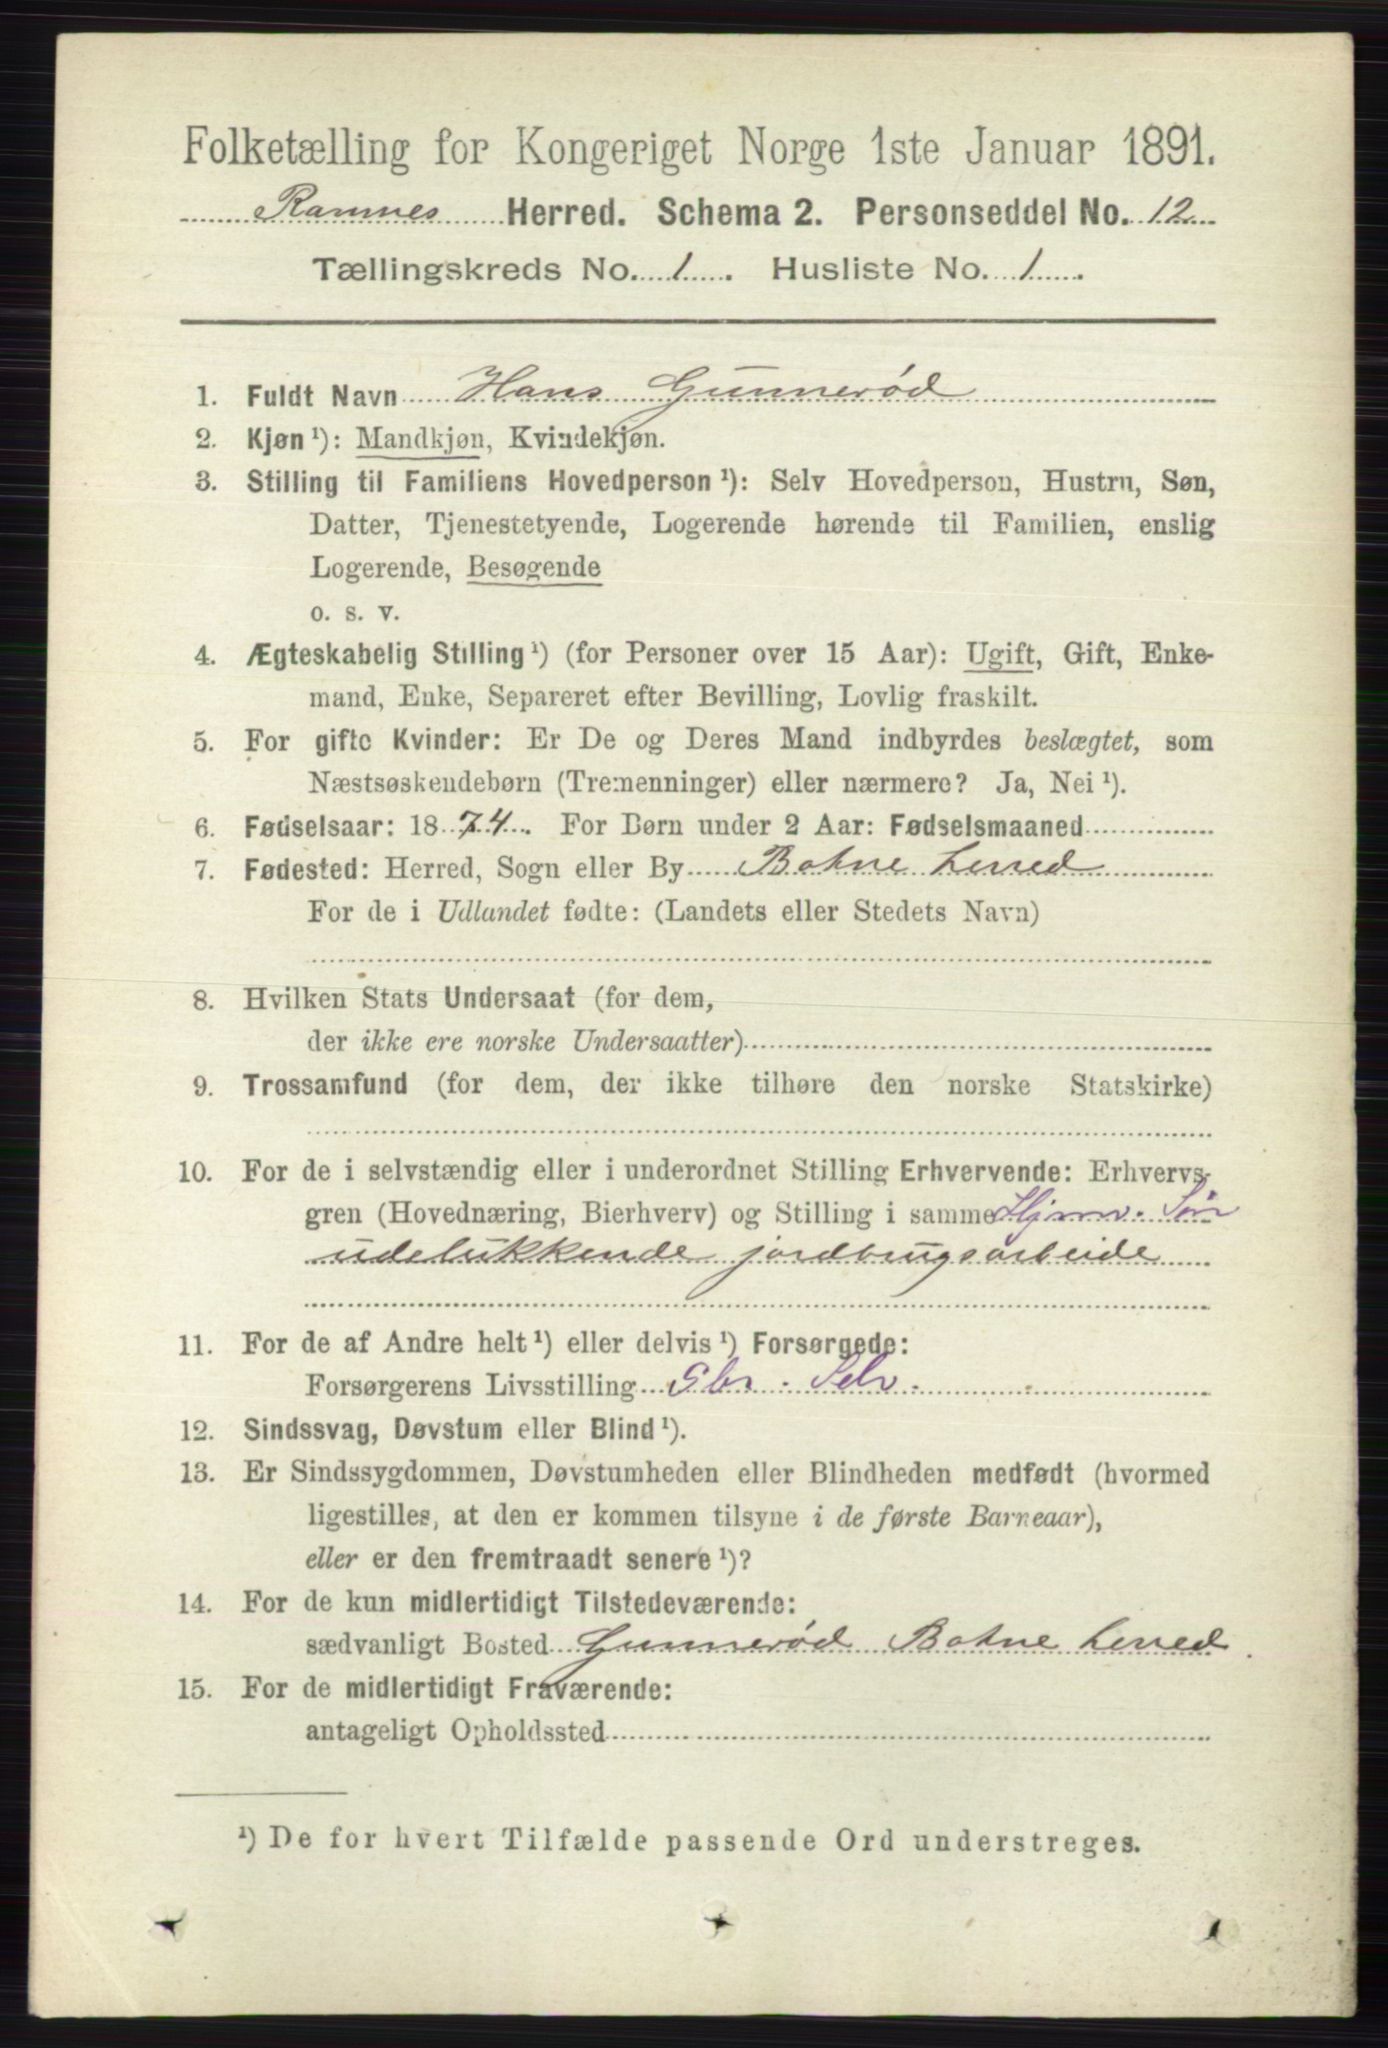 Folketælling for Kongeriget Norge 1ste Januar 1891.
Ramnes Herred. Schema 2. Personseddel No. 12
Tællingskreds No. 1. Husliste No. 1.
1. Fuldt Navn Hans Gunnerød
2. Kjøn¹): Mandkjøn, Kvindekjøn.
3. Stilling til Familiens Hovedperson¹): Selv Hovedperson, Hustru, Søn,
Datter, Tjenestetyende, Logerende hørende til Familien, enslig
Logerende, Besøgende
o. s. v.
4. Ægteskabelig Stilling¹) (for Personer over 15 Aar): Ugift, Gift, Enke-
mand, Enke, Separeret efter Bevilling, Lovlig fraskilt.
5. For gifte Kvinder: Er De og Deres Mand indbyrdes beslægtet, som
Næstsøskendebørn (Tremenninger) eller nærmere? Ja, Nei¹).
6. Fødselsaar: 1874. For Børn under 2 Aar: Fødselsmaaned
7. Fødested: Herred, Sogn eller By Botne herred
For de i Udlandet fødte: (Landets eller Stedets Navn)
8. Hvilken Stats Undersaat (for dem,
der ikke ere norske Undersaatter)
9. Trossamfund (for dem, der ikke tilhøre den norske Statskirke)
10. For de i selvstændig eller i underordnet Stilling Erhvervende: Erhvervs-
gren (Hovednæring, Bierhverv) og Stilling i samme Hjmv. Søn
udelukkende jordbrugsarbeide
11. For de af Andre helt¹) eller delvis¹) Forsørgede:
Forsørgerens Livsstilling Gbr. Selv.
12. Sindssvag, Døvstum eller Blind¹).
13. Er Sindssygdommen, Døvstumheden eller Blindheden medfødt (hvormed
ligestilles, at den er kommen tilsyne i de første Barneaar),
eller er den fremtraadt senere¹)?
14. For de kun midlertidigt Tilstedeværende:
sædvanligt Bosted Gunnerød Botne herred
15. For de midlertidigt Fraværende:
antageligt Opholdssted
¹) De for hvert Tilfælde passende Ord understreges.